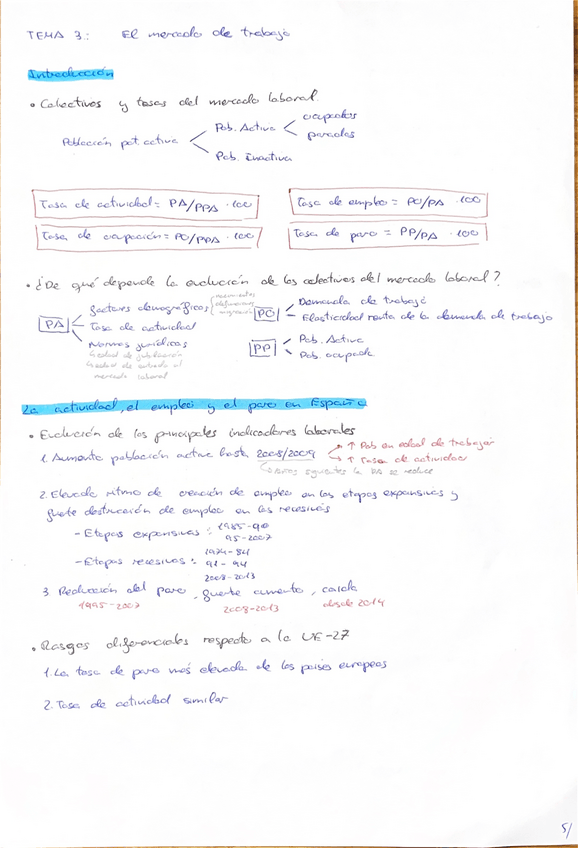 TEMA 3.: El mercado de trabajo
Introducción
• Colectivos y tasas del mercado laboral.
Población pot. activa
Pob. Activa
ocupados
parados
Pob. Inactiva
Tasa de actividad = PA/PPA · 100
Tasa de empleo = PO/PA · 100
Tasa de ocupación = PO/PPA · 100
Tasa de paro = PP/PA · 100
• ¿De qué depende la evolución de los colectivos del mercado laboral?
PA
factores demográficos
nacimientos
defunciones
migración
Tasa de actividad
Normas jurídicas
edad de jubilación
edad de entrada al
mercado laboral
PO
Demanda de trabajo
Elasticidad renta de la demanda de trabajo
PP
Pob. Activa
Pob. ocupada
La actividad, el empleo y el paro en España
• Evolución de los principales indicadores laborales
1. Aumento población activa hasta 2008/2009
↑ Pob en edad de trabajar
↑ Tasa de actividad
años siguientes la PA se reduce
2. Elevado ritmo de creación de empleo en las etapas expansivas y
fuerte destrucción de empleo en las recesivas
- Etapas expansivas: 1985-90
95-2007
- Etapas recesivas: 1974-84
91-94
2008-2013
3. Reducción del paro, fuerte aumento, caída
1995-2007 2008-2013 desde 2014
• Rasgos diferenciales respecto a la UE-27
1. La tasa de paro más elevada de los países europeos
2. Tasa de actividad similar
5/